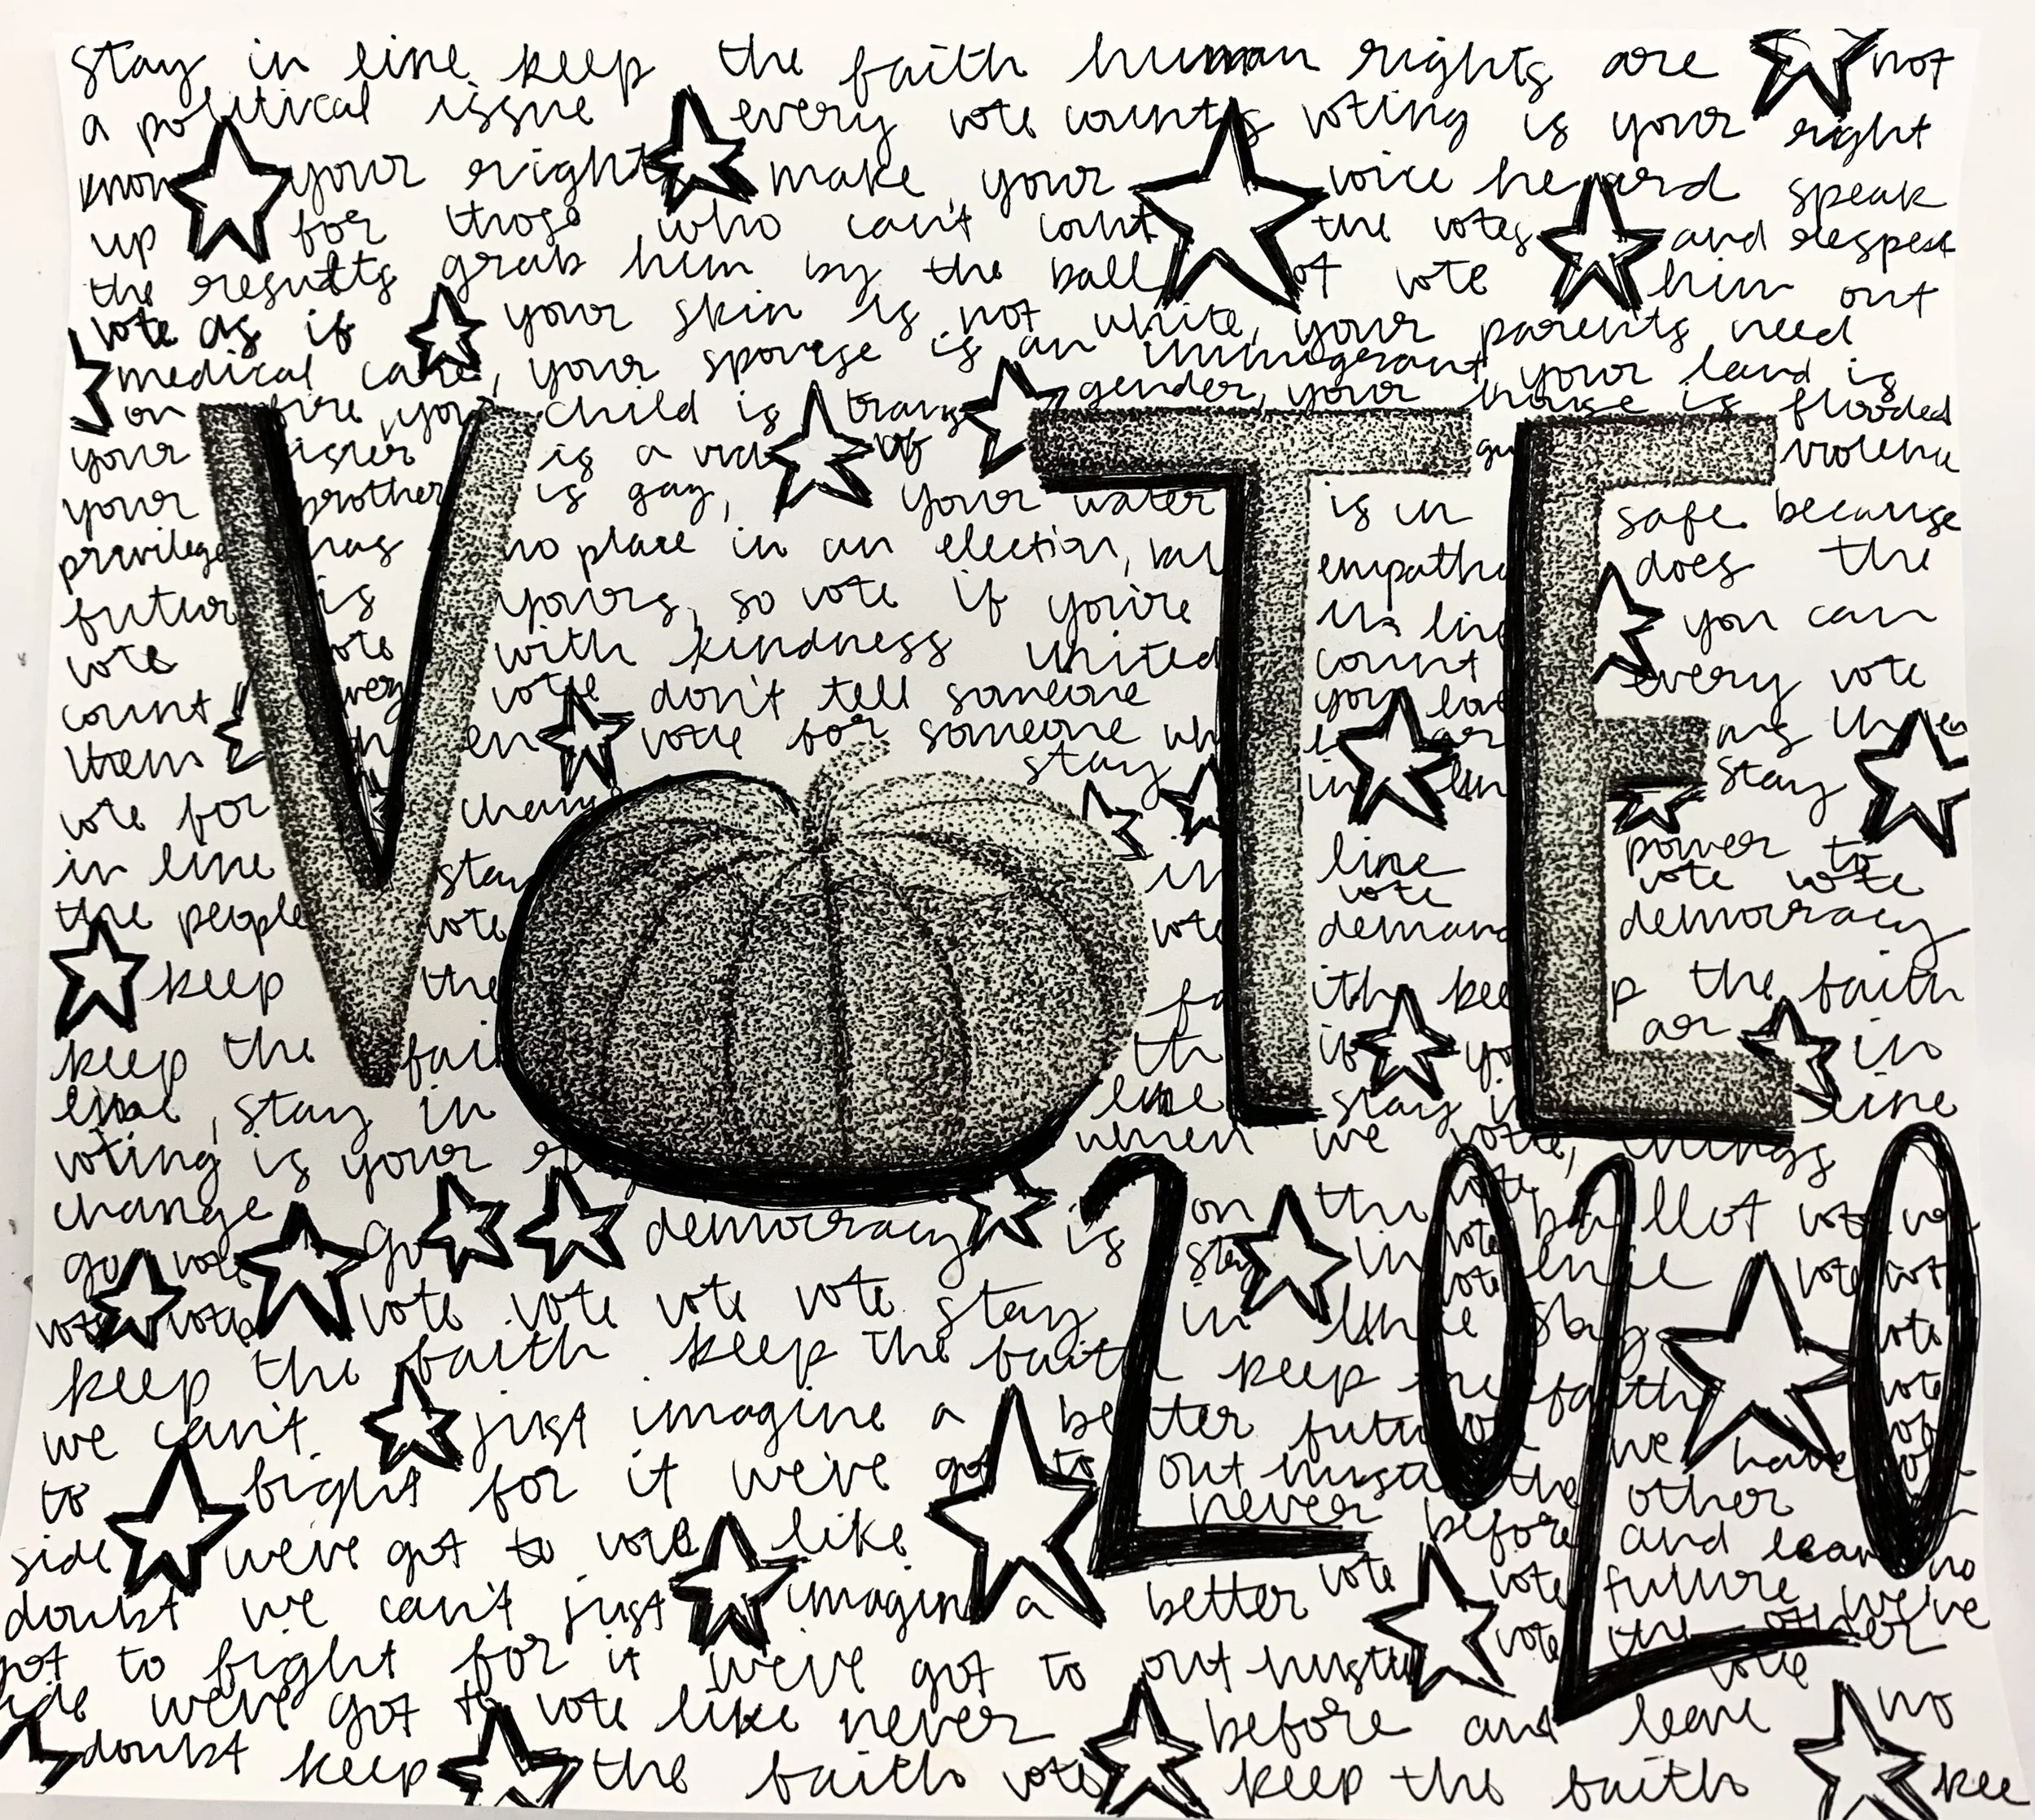 stay in line keep the faith human rights are not
a political issue every vote counts voting is your right
know your right make your voice heard speak
up for those who can't count the votes and respect
the results grab him by the ballot vote him out
vote as if your skin is not white, your parents need
medical care, your spouse is an immigrant your land is
on fire, your child is trans gender, your house is flooded
your sister is a of violence
your brother is gay, your water is in safe because
privilege has no place in an election, but does the
future is yours, so vote if you're in line you can
vote vote with kindness united count
count every vote don't tell someone you love every vote
them vote for someone
stay
vote for chan in line stay
in line stay in line power to
vote vote vote
the people vote vote demand democracy
keep the faith keep the faith
keep the fai th if yo ar in
line, stay in line stay in line
voting is your when we vote, things
change
go vote go democracy is on the ballot vote
stay in line vote
vote vote vote vote vote vote stay in line stay
keep the faith keep the faith keep the faith
we can't just imagine a better future we have
to fight for it we've got to out hustle the other
side we've got to vote like never before and leave no
doubt we can't just imagine a better vote vote future we've
got to fight for it we've got to out hustle vote the other
side we've got to vote like never before and leave no
vote
doubt keep the faith vote keep the faith kee
VOTE
2020